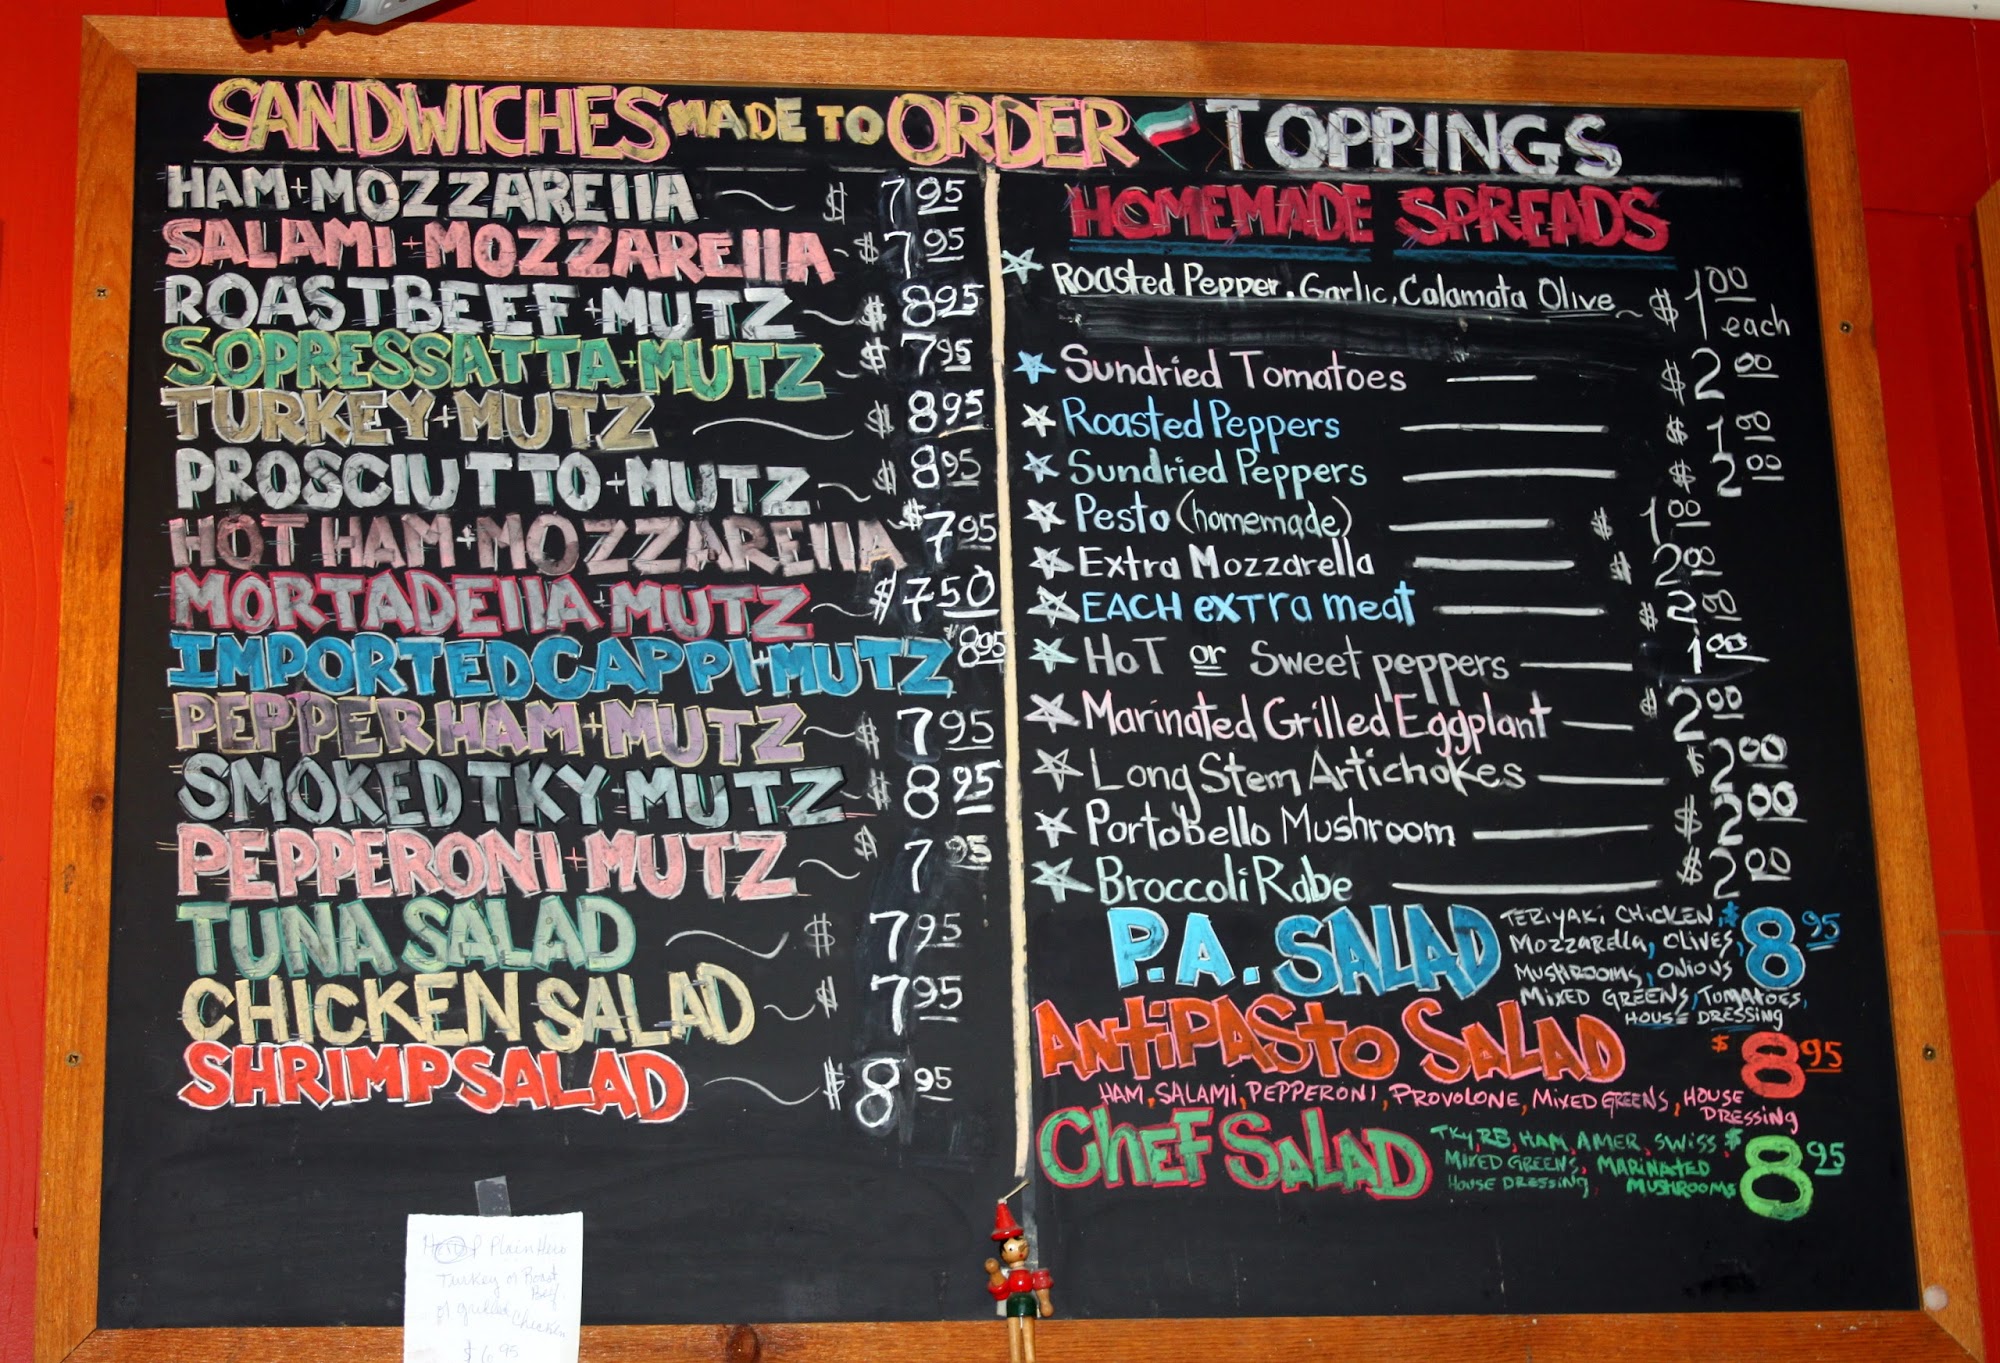 SANDWICHES MADE TO ORDER
HAM + MOZZARELLA $ 7.95
SALAMI + MOZZARELLA $ 7.95
ROAST BEEF + MUTZ $ 8.95
SOPRESSATTA + MUTZ $ 7.95
TURKEY + MUTZ $ 8.95
PROSCIUTTO + MUTZ $ 8.95
HOT HAM + MOZZARELLA $ 7.95
MORTADELLA + MUTZ $ 7.50
IMPORTED CAPPI + MUTZ $ 8.95
PEPPER HAM + MUTZ $ 7.95
SMOKED TKY + MUTZ $ 8.95
PEPPERONI + MUTZ $ 7.95
TUNA SALAD $ 7.95
CHICKEN SALAD $ 7.95
SHRIMP SALAD $ 8.95
Plain Hero
Turkey or Roast
Beef
or grilled
Chicken
$ 6.95
TOPPINGS
HOMEMADE SPREADS
Roasted Pepper, Garlic, Calamata Olive $ 1.00
each
Sundried Tomatoes $ 2.00
Roasted Peppers $ 1.00
Sundried Peppers $ 2.00
Pesto (homemade) $ 1.00
Extra Mozzarella $ 2.00
EACH extra meat $ 2.00
HoT or Sweet peppers 1.00
Marinated Grilled Eggplant $ 2.00
Long Stem Artichokes $ 2.00
Portobello Mushroom $ 2.00
Broccoli Rabe $ 2.00
P.A. SALAD $ 8.95
TERIYAKI CHICKEN,
MOZZARELLA, OLIVES,
MUSHROOMS, ONIONS
MIXED GREENS, TOMATOES,
HOUSE DRESSING
ANTIPASTO SALAD $ 8.95
HAM, SALAMI, PEPPERONI, PROVOLONE, MIXED GREENS, HOUSE
DRESSING
CHEF SALAD $ 8.95
TKY, RB, HAM, AMER, SWISS
MIXED GREENS, MARINATED
HOUSE DRESSING, MUSHROOMS